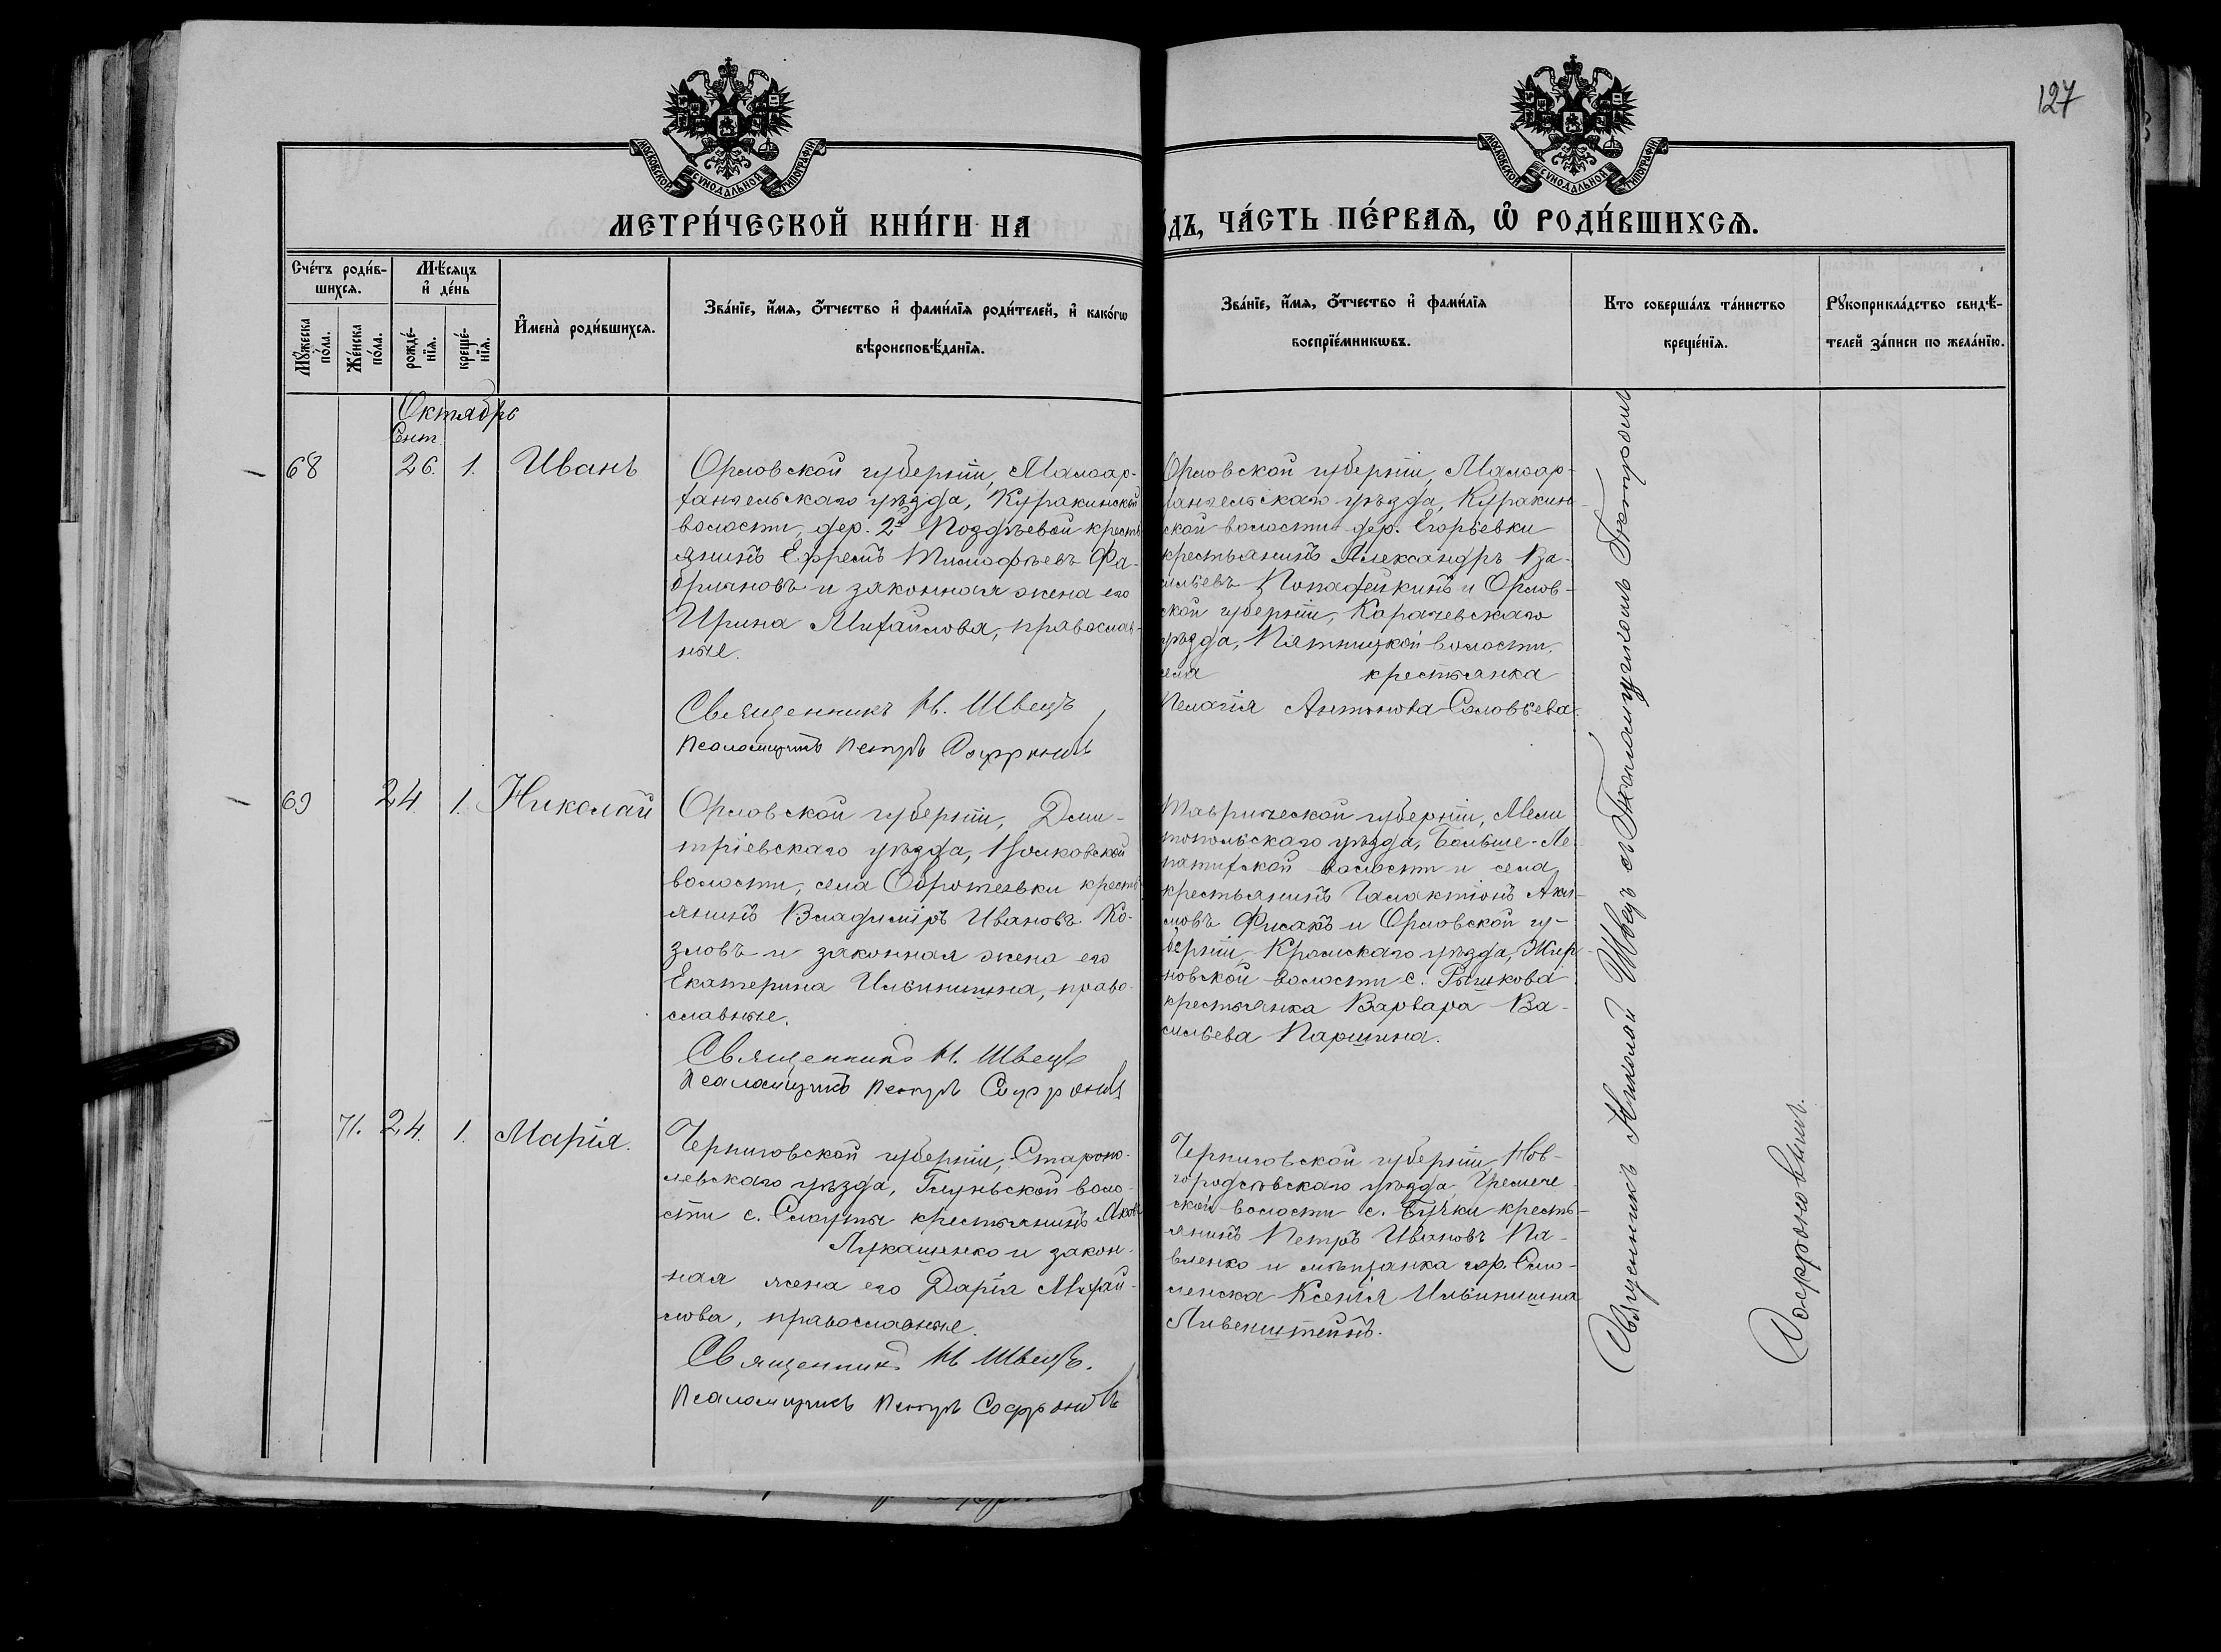 127
МОСКОВСКОЙ СѴНОДАЛЬНОЙ ТИПОГРАФІИ
МОСКОВСКОЙ СѴНОДАЛЬНОЙ ТИПОГРАФІИ
МЕТРИ́ЧЕСКОЙ КНИ́ГИ НА
ДЪ, ЧА́СТЬ ПЕ́РВАѦ, Ѽ РОДИ́ВШИХСѦ.
Сче́тъ роди́в-
шихсѧ.
Мѣ́сѧцъ
и҆ де́нь
Мꙋ́жеска по́ла.
Же́нска по́ла.
рожде́-
нїѧ.
креще́-
нїѧ.
И҆мена̀ роди́вшихсѧ.
Зва́нїе, и҆́мѧ, ѻ҆́тчество и҆ фами́лїѧ роди́телей, и҆ како́гѡ
вѣроисповѣ́данїѧ.
Зва́нїе, и҆́мѧ, ѻ҆́тчество и҆ фами́лїѧ
воспрїе́мникѡвъ.
Кто соверша́лъ та́инство
креще́нїѧ.
Рꙋкоприкла́дство свидѣ́-
телей за́писи по жела́нїю.
Октябрь
Сент.
68 26. 1. Иванъ
Орловской губерніи, Малоар-
хангельскаго уѣзда, Куракинской
волости, дер. 2й Поздѣевой кресть
янинъ Ефремъ Тимофѣевъ Фа-
бричновъ и законная жена его
Ирина Михайлова, православ-
ные.
Священникъ Н. Швецъ
Псаломщикъ Петръ Софроновъ
Орловской губерніи, Малоар-
хангельскаго уѣзда, Куракин-
ской волости дер. Егорьевки
крестьянинъ Александръ Ва-
сильевъ и Орлов-
ской губерніи, Карачевскаго
уѣзда, Пятницкой волости,
села крестьянка
Пелагія Антонова Соловьева.
69 24. 1. Николай
Орловской губерніи, Дми-
тріевскаго уѣзда,
волости, села кресть
янинъ Владиміръ Ивановъ Ко-
зловъ и законная жена его
Екатерина Ильинишна, право-
славные.
Священникъ Н. Швецъ
Псаломщикъ Петръ Софроновъ
Таврической губерніи, Мели
топольскаго уѣзда, Больше-Ле-
патихской волости и села
крестьянинъ Галактіонъ Аки-
мовъ Фисакъ и Орловской гу-
берніи, Кромскаго уѣзда, Жир
новской волости с. Рышкова
крестьянка Варвара Ва-
сильева Паршина.
71. 24. 1. Марія.
Черниговской губерніи,
уѣзда, воло-
сти с. крестьянинъ Яковъ
Лукашенко и закон-
ная жена его Дарія Михай-
лова, православные.
Священникъ Н. Швецъ.
Псаломщикъ Петръ Софроновъ
Черниговской губерніи, Нов-
городсѣвскаго уѣзда, Гремяче-
ской волости с. Бучки кресть-
янинъ Петръ Ивановъ Па-
вленко и мѣщанка гор. Смо-
ленска Ксенія Ильинишна
Ливенштейнъ.
Священникъ Николай Швецъ съ Псаломщикомъ Петромъ
Софроновымъ.